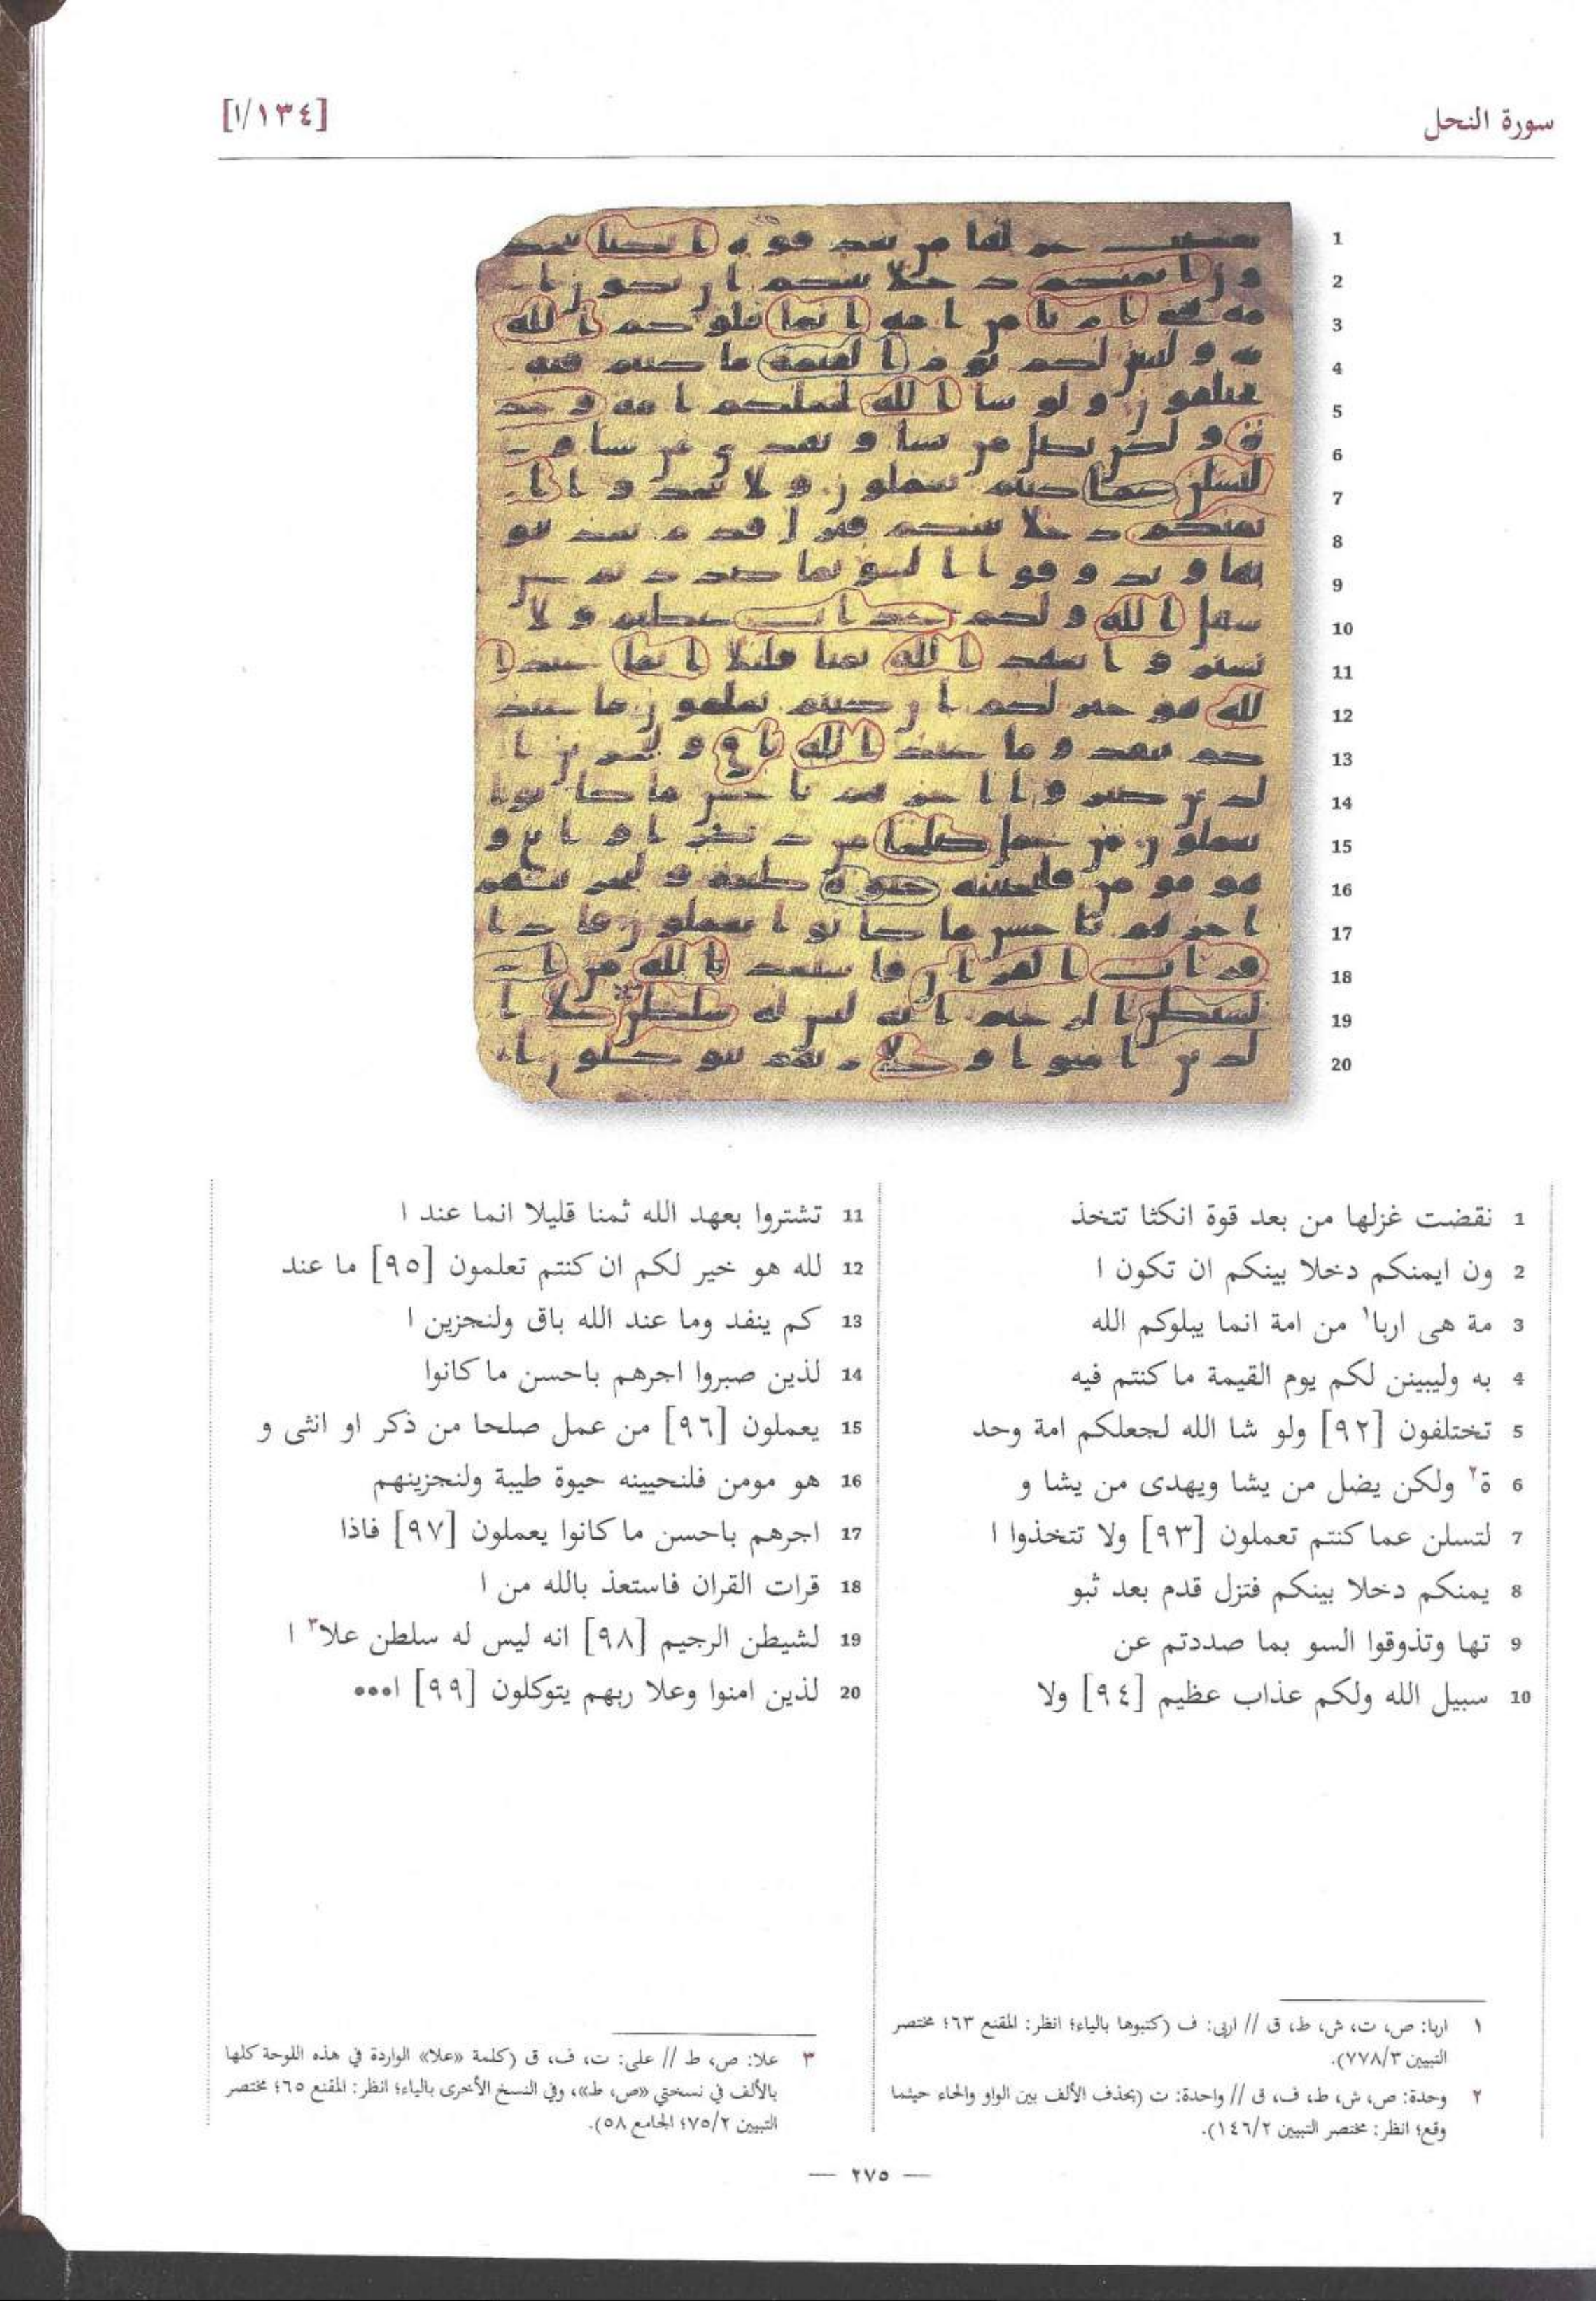 سورة النحل
[١٣٤/ا]
1 نقضت غزلها من بعد قوة انكثا تتخذ
2 ون ايمنكم دخلا بينكم ان تكون ا
3 مة هى اربا١ من امة انما يبلوكم الله
4 به وليبينن لكم يوم القيمة ما كنتم فيه
5 تختلفون [٩٢] ولو شا الله لجعلكم امة وحد
6 ة٢ ولكن يضل من يشا ويهدى من يشا و
7 لتسلن عما كنتم تعملون [٩٣] ولا تتخذوا ا
8 يمنكم دخلا بينكم فتزل قدم بعد ثبو
9 تها وتذوقوا السو بما صددتم عن
10 سبيل الله ولكم عذاب عظيم [٩٤] ولا
11 تشتروا بعهد الله ثمنا قليلا انما عند ا
12 لله هو خير لكم ان كنتم تعلمون [٩٥] ما عند
13 كم ينفد وما عند الله باق ولنجزين ا
14 لذين صبروا اجرهم باحسن ما كانوا
15 يعملون [٩٦] من عمل صلحا من ذكر او انثى و
16 هو مومن فلنحيينه حيوة طيبة ولنجزينهم
17 اجرهم باحسن ما كانوا يعملون [٩٧] فاذا
18 قرات القران فاستعذ بالله من ا
19 لشيطن الرجيم [٩٨] انه ليس له سلطن علا٣ ا
20 لذين امنوا وعلا ربهم يتوكلون [٩٩] ا•••
١ اربا: ص، ت، ش، ط، ق // اربى: ف (كتبوها بالياء؛ انظر: المقنع ٦٣؛ مختصر
التبيين ٧٧٨/٣).
٢ وحدة: ص، ش، ط، ف، ق // واحدة: ت (بحذف الألف بين الواو والحاء حيثما
وقع؛ انظر: مختصر التبيين ١٤٦/٢).
٣ علا: ص، ط // على: ت، ف، ق (كلمة «علا» الواردة في هذه اللوحة كلها
بالألف في نسختي «ص، ط»، وفي النسخ الأخرى بالياء؛ انظر: المقنع ٦٥؛ مختصر
التبيين ٧٥/٢؛ الجامع ٥٨).
— ٢٧٥ —